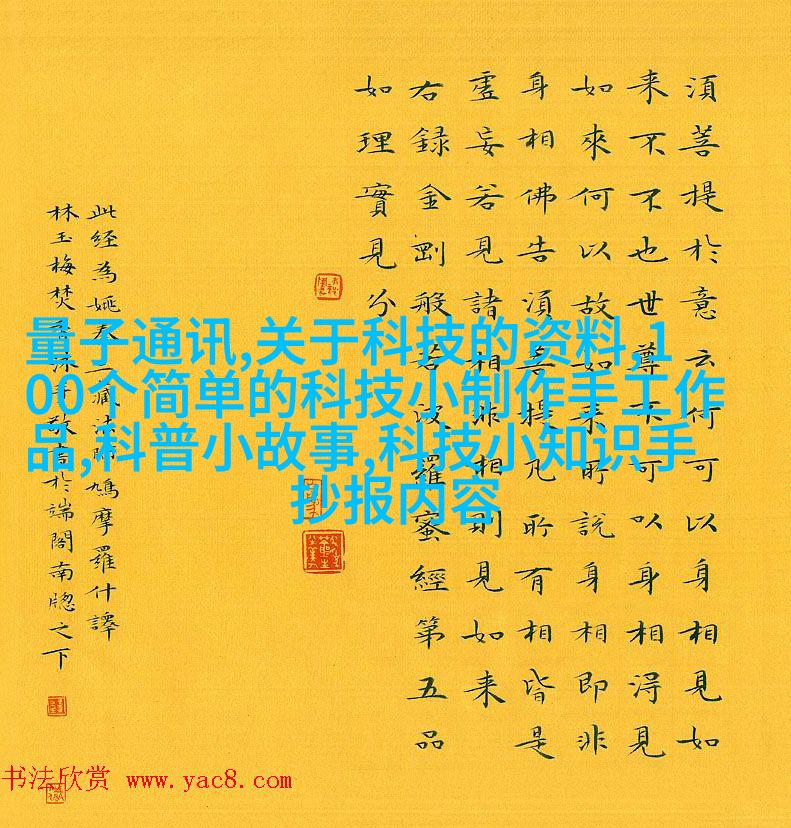 須菩提於意云何可以身相見如
来不不也世尊不可以身相得見
如來何以故如来所說身相即非
身相佛告須菩提凡所有相皆是
虛妄若見諸相非相則見如来
右録金剛般若波羅蜜經第五品
如理實見分
此経為姚秦三藏法師鳩摩羅什譯
林玉梅焚香沐手敬書於端閣南牎之下
量子通讯,关于科技的资料,1
00个简单的科技小制作手工作
品,科普小故事,科技小知识手
抄报内容
书法欣赏 www.yac8.com